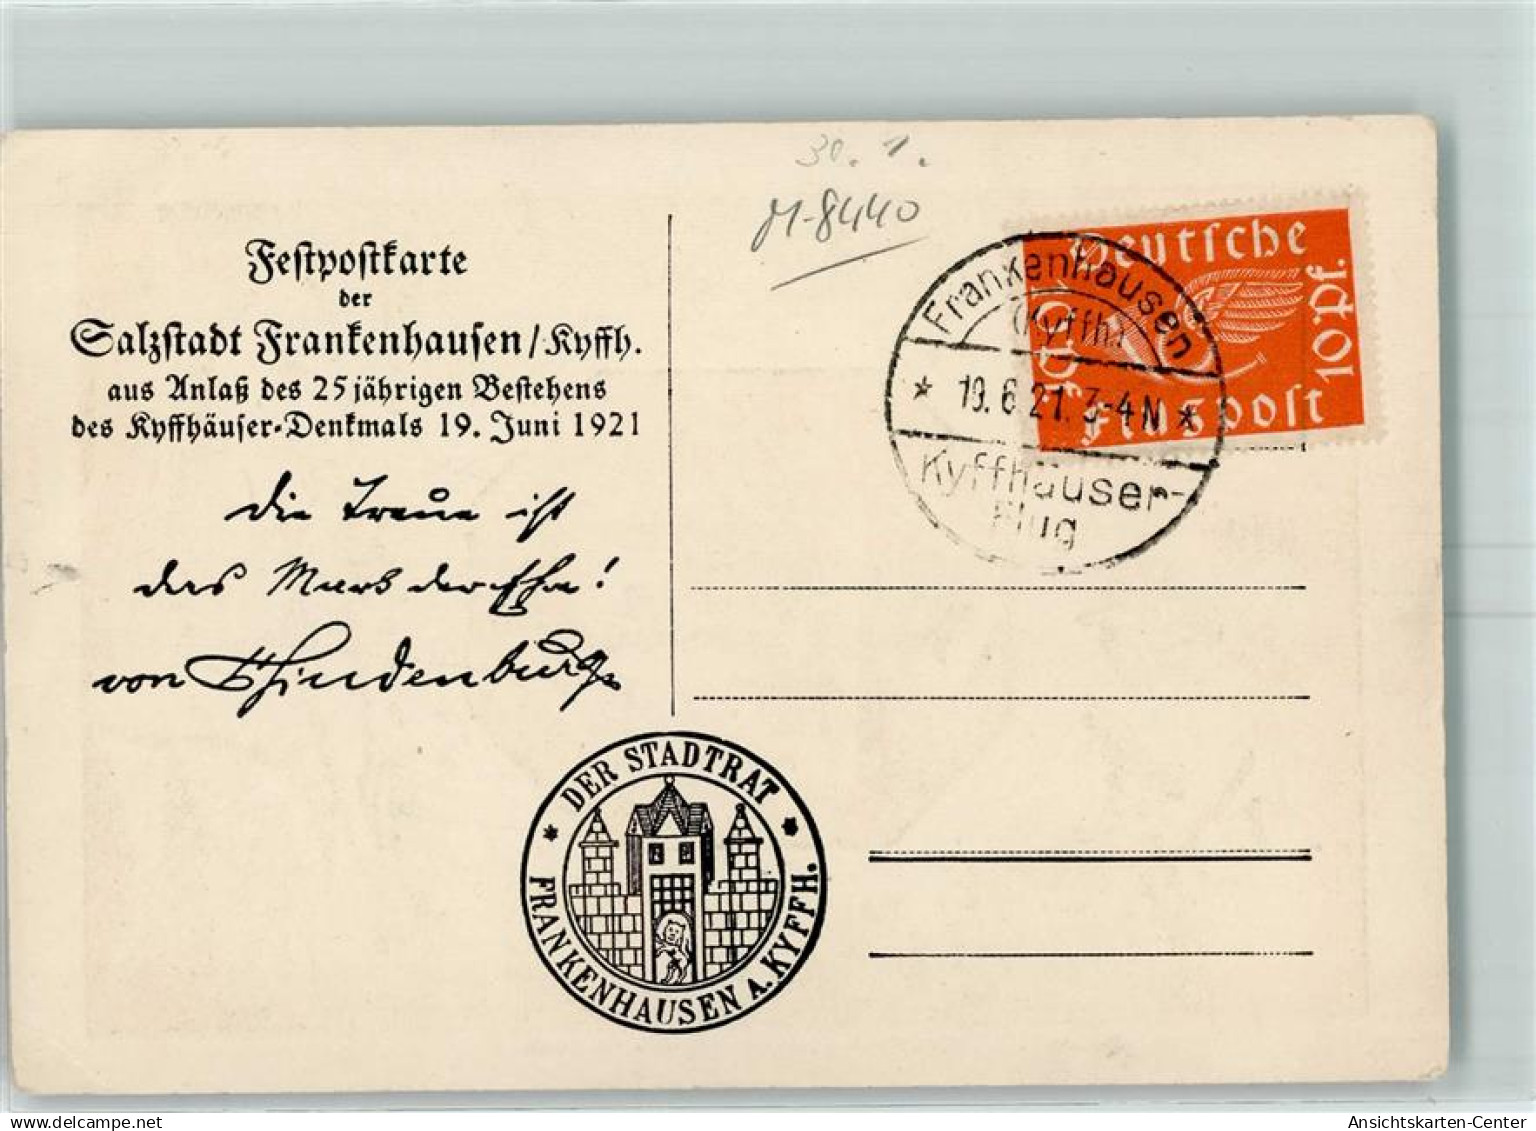 30. 1.
M-8440
Festpostkarte
der
Salzstadt Frankenhausen/Kyffh.
aus Anlaß des 25 jährigen Bestehens
des Kyffhäuser-Denkmals 19. Juni 1921
Die Treue ist
das Mark der Ehre!
von Hindenburg
Deutsche
10 Pf.
10 Pf.
Flugpost
Frankenhausen
(Kyffh.)
* 19. 6. 21. 3-4 N *
Kyffhäuser-
Flug
* DER STADTRAT *
FRANKENHAUSEN A. KYFFH.
Ansichtskarten-Center